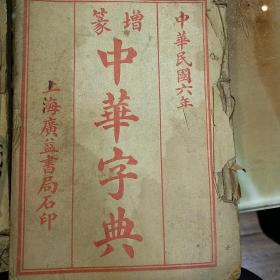 中華民國六年
增篆
中華字典
上海廣益書局石印